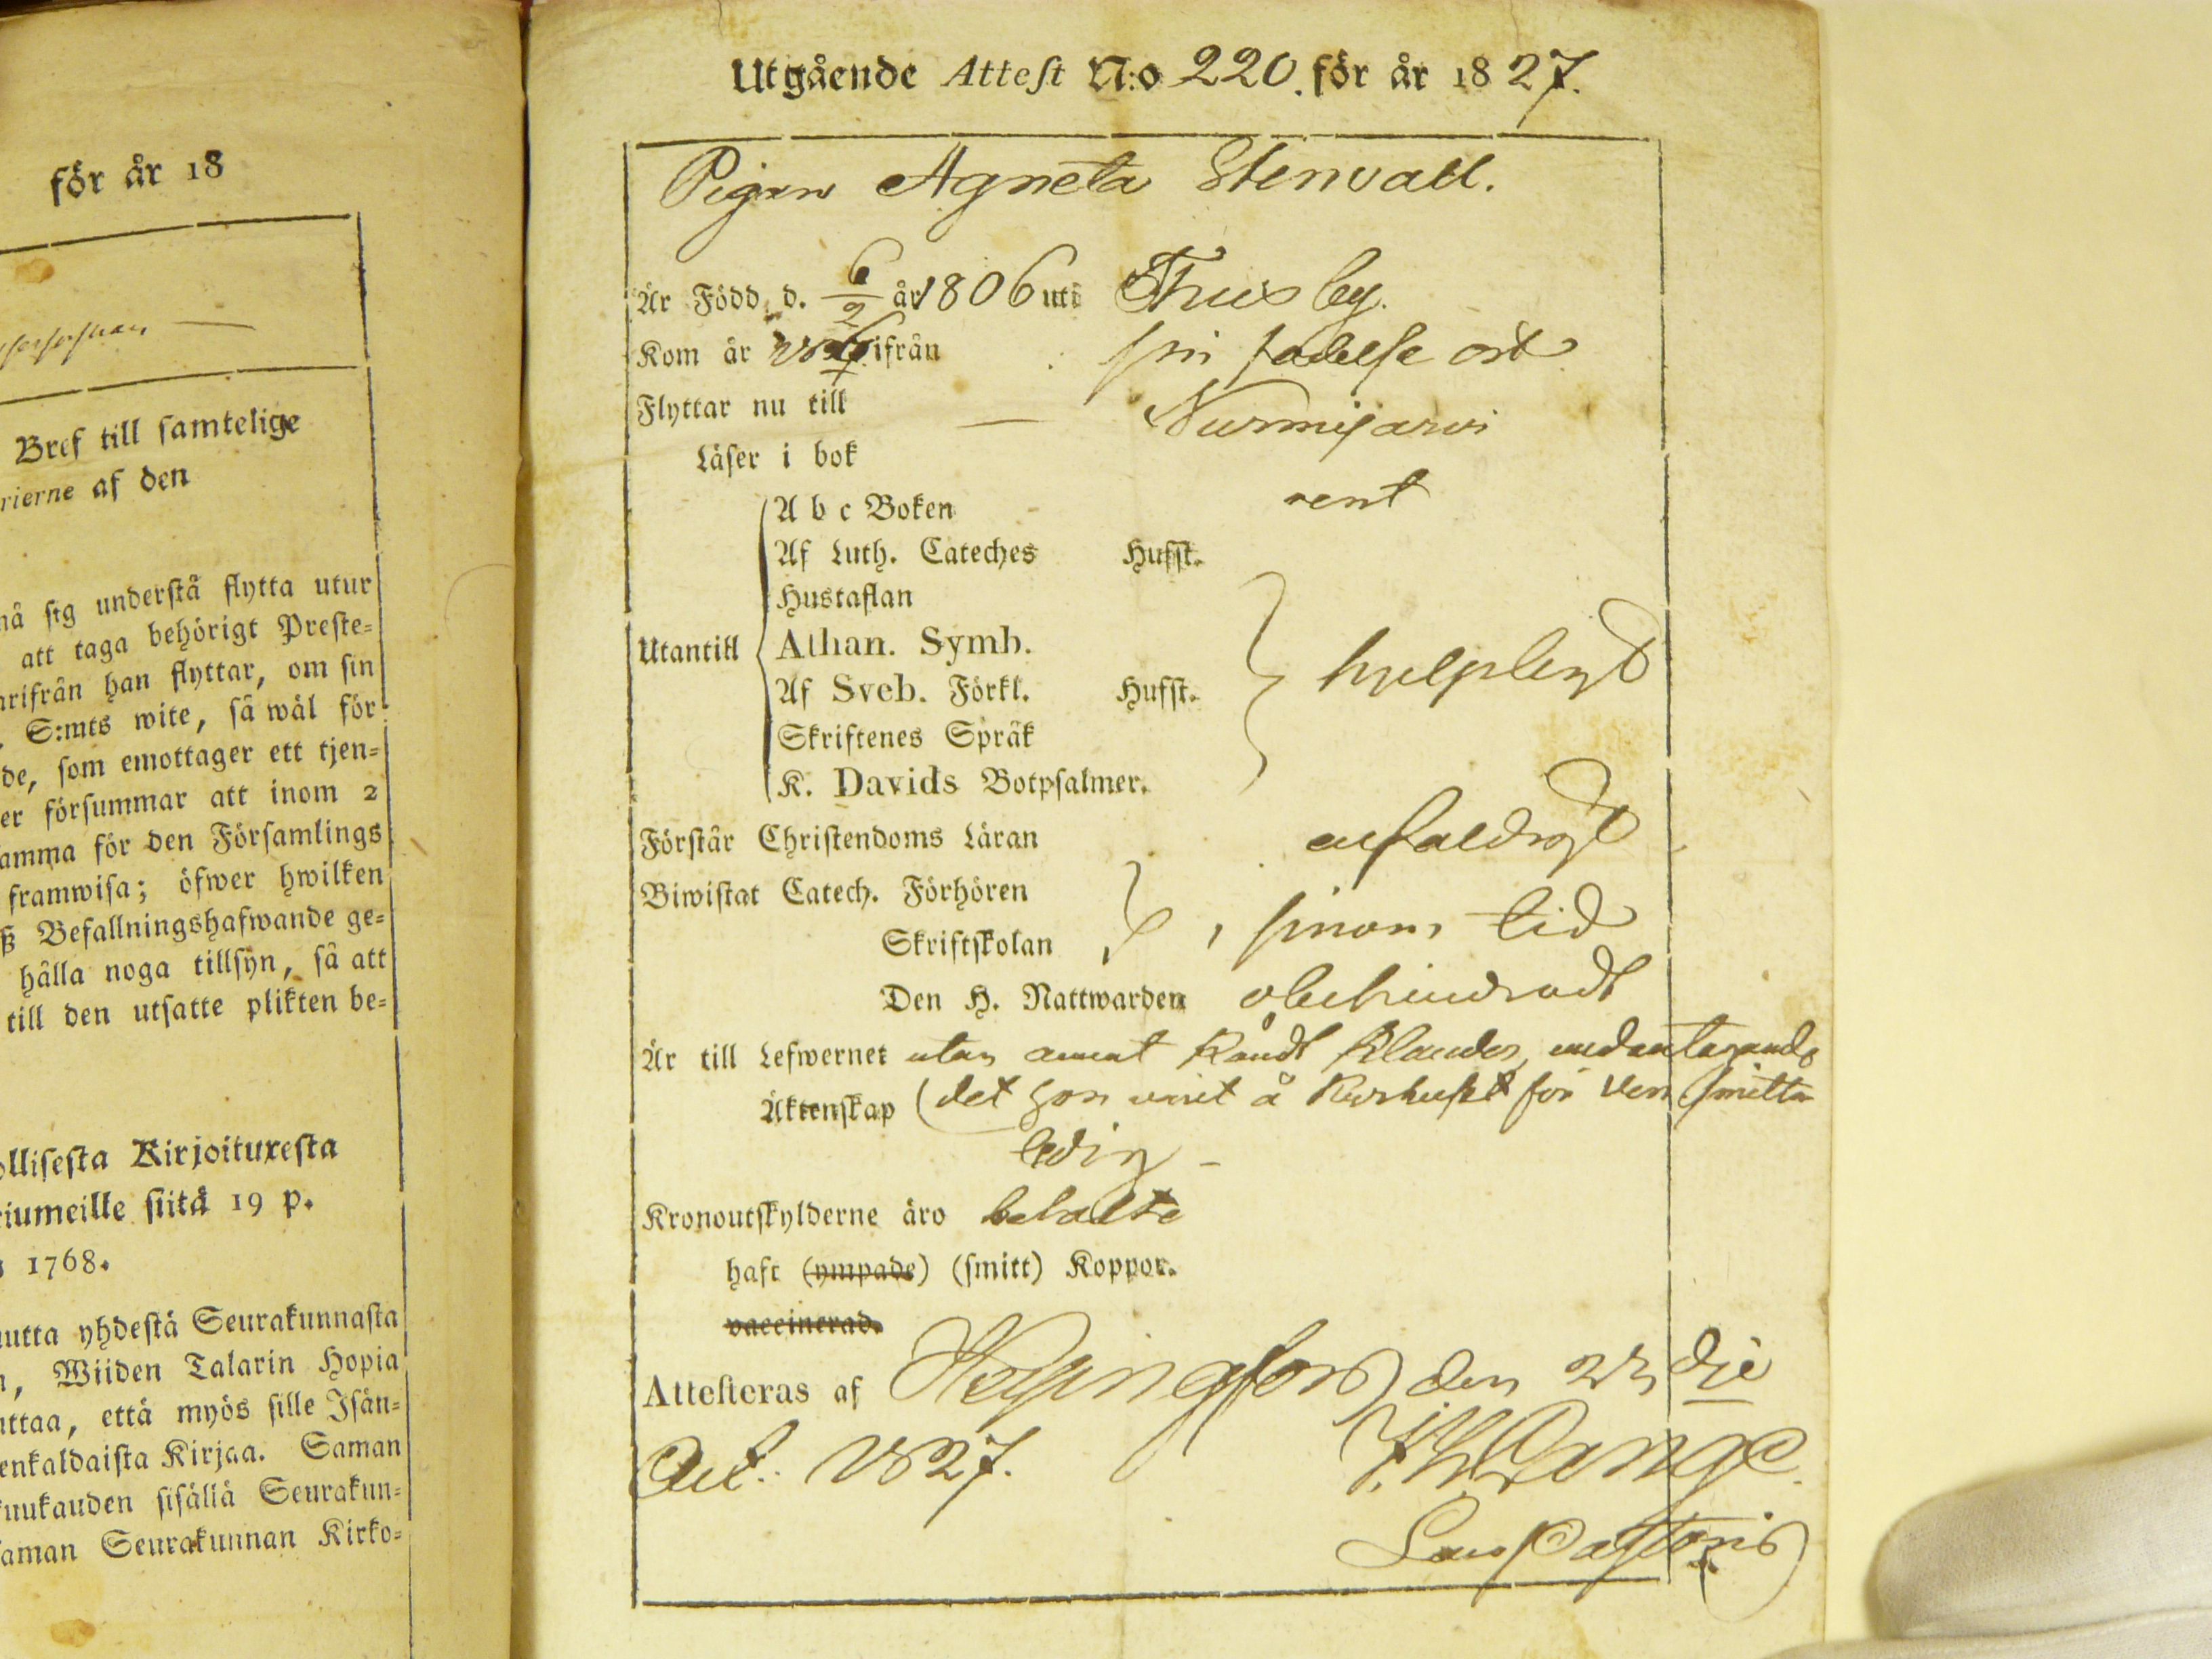 för år 18
Bref till samtelige
rierne af den
nå sig understå flytta utur
att taga behörigt Preste-
rifrån han flyttar, om sin
S:mts wite, så wäl för
de, som emottager ett tjen-
er försummar att inom 2
amma för den Församlings
framwisa; öfwer hwilken
ß Befallningshafwande ge-
hålla noga tillsyn, så att
till den utsatte plikten be-
ollisesta Kirjoituxesta
riumeille siitä 19 p.
1768.
utta yhdestä Seurakunnasta
n, Wiiden Talarin Hopia
uttaa, että myös sille Isän-
enkaldaista Kirjaa. Saman
uukauden sisällä Seurakun-
saman Seurakunnan Kirko-
Utgående Attest N:o 220. för år 1827.
Pigan Agneta Stenvall.
Är Född d. 6/2 år 1806 uti Thusby.
Kom år ifrån sin födelse ort
Flyttar nu till — Nurmijärvi
Läser i bok
A b c Boken rent
Af Luth. Cateches Hufst.
Hustaflan
Utantill Athan. Symb. hjelpligt
Af Sveb. Förkl. Hufst.
Skriftenes Språk
K. Davids Botpsalmer.
Förstår Christendoms Läran enfaldigt
Biwistat Catech. Förhören
Skriftskolan i sinom tid
Den H. Nattwarden obehindradt
Är till Lefwernet utan annat kändt klander, undantagande
Äktenskap (det hon varit å Kurhuset för Ven. smitta
ledig –
Kronoutskylderne äro betalte
haft (ympade) (smitt) Koppor.
vaccinerad.
Attesteras af Helsingfors den 23 die
Oct. 1827.
Pastoris